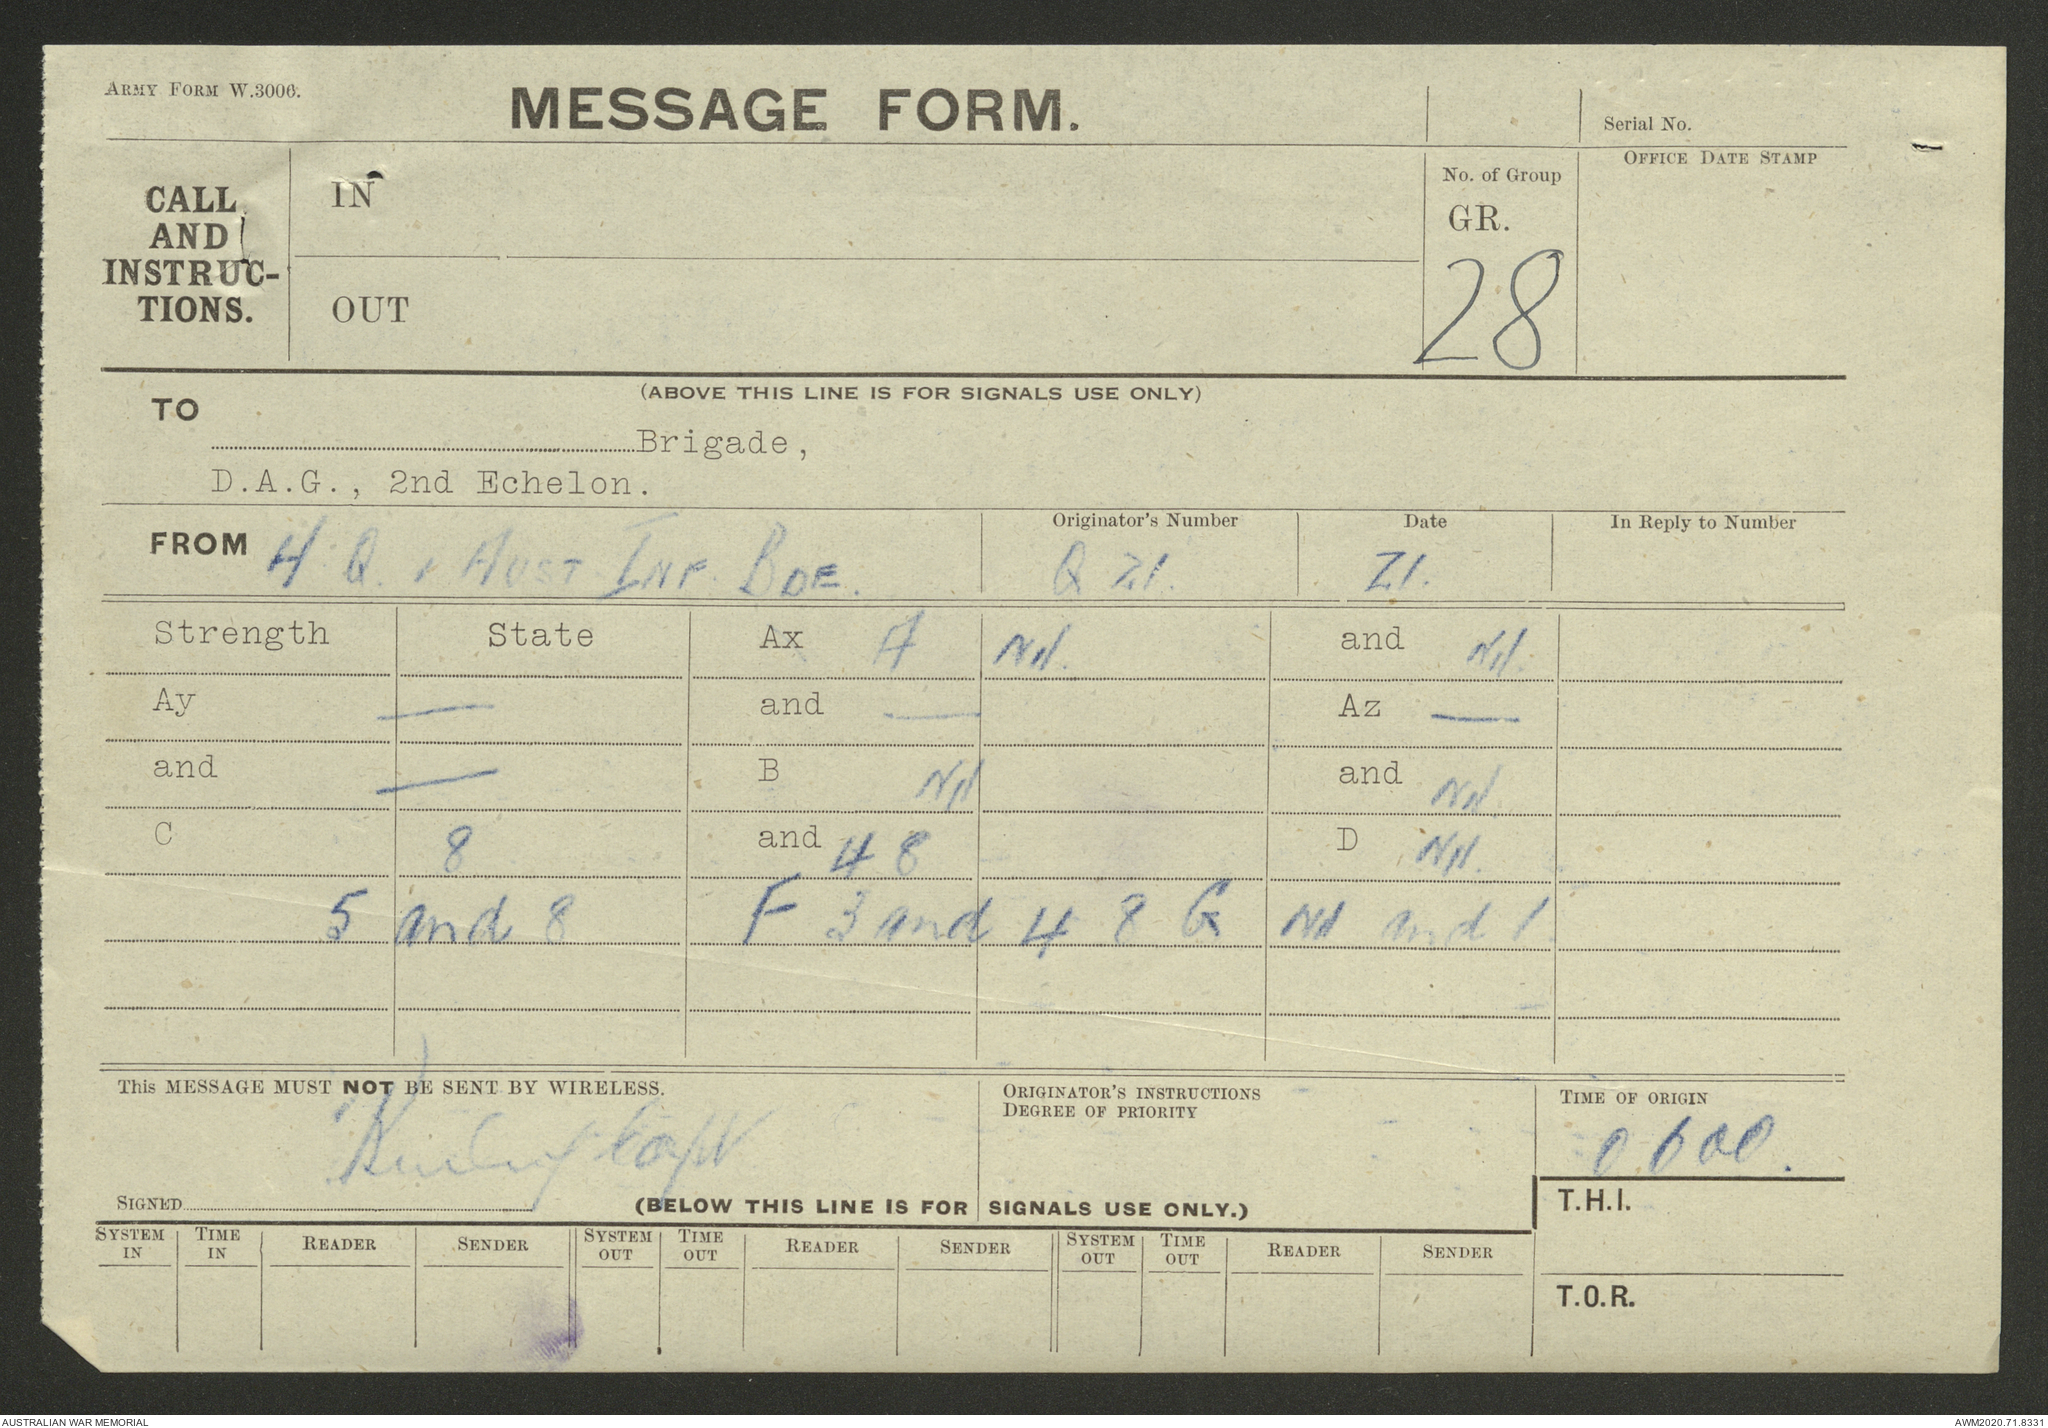 ARMY FORM W.3006.
MESSAGE FORM.
Serial No.
CALL
AND
INSTRUC-
TIONS.
IN
No. of Group
GR.
28
OFFICE DATE STAMP
OUT
(ABOVE THIS LINE IS FOR SIGNALS USE ONLY)
TO
Brigade,
D.A.G., 2nd Echelon.
FROM H.Q. AUST INF. BDE.
Originator's Number
Q 21.
Date
21.
In Reply to Number
Strength State Ax A Nil. and Nil.
Ay — and — Az —
and — B Nil and Nil
C 8 and 48 D Nil.
5 and 8 F 3 and 48 G Nil and 1.
This MESSAGE MUST NOT BE SENT BY WIRELESS.
ORIGINATOR'S INSTRUCTIONS
DEGREE OF PRIORITY
TIME OF ORIGIN
0600.
Capt
SIGNED
(BELOW THIS LINE IS FOR SIGNALS USE ONLY.)
T.H.I.
SYSTEM IN TIME IN READER SENDER SYSTEM OUT TIME OUT READER SENDER SYSTEM OUT TIME OUT READER SENDER
T.O.R.
AUSTRALIAN WAR MEMORIAL
AWM2020.71.8331